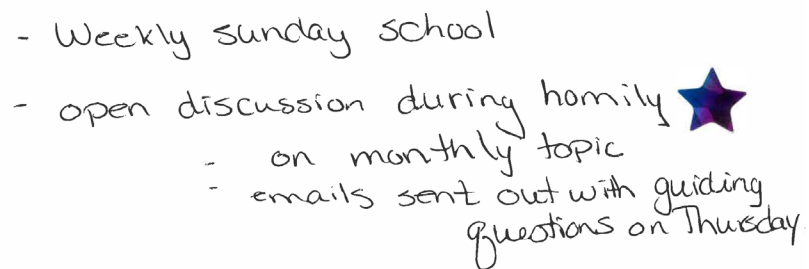 - Weekly sunday school
- open discussion during homily
- on monthly topic
- emails sent out with guiding
questions on Thursday